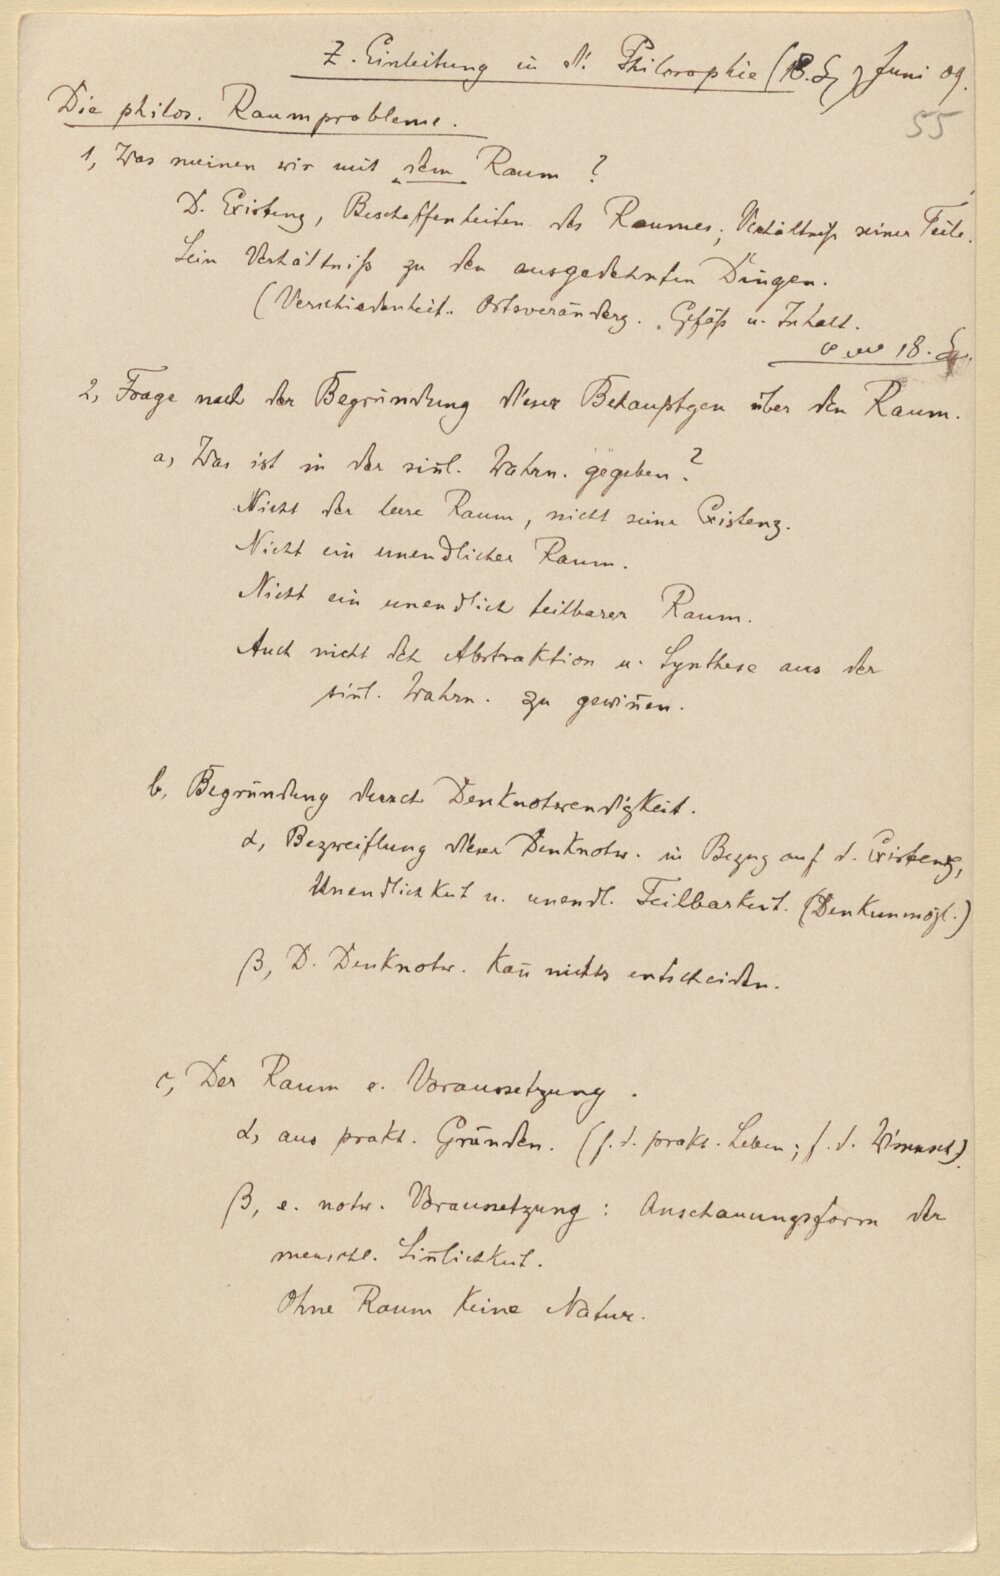 Z. Einleitung in d. Philosophie (18. 7 Juni 09.
55
Die philos. Raumprobleme.
1, Was meinen wir mit „dem" Raum?
D. Existenz, Beschaffenheiten des Raumes; Verhältniß seiner Teile.
Sein Verhältniß zu den ausgedehnten Dingen.
(Verschiedenheit. Ortsveränderg. Gefäß u. Inhalt.
18.
2, Frage nach der Begründung dieser Behauptgen über den Raum.
a, Was ist in der sinl. Wahrn. gegeben?
Nicht der leere Raum, nicht seine Existenz.
Nicht ein unendlicher Raum.
Nicht ein unendlich teilbarer Raum.
Auch nicht dch Abstraktion u. Synthese aus der
sinl. Wahrn. zu gewinen.
b, Begründung durch Denknotwendigkeit.
α, Bezweiflung dieser Denknotw. in Bezug auf d. Existenz,
Unendlichkeit u. unendl. Teilbarkeit. (Denkunmögl.)
β, D. Denknotw. kan nichts entscheiden.
c, Der Raum e. Voraussetzung.
α, aus prakt. Gründen. (f. d. prakt. Leben; f. d. Wissensch.)
β, e. notw. Voraussetzung: Anschauungsform der
menschl. Sinlichkeit.
Ohne Raum keine Natur.